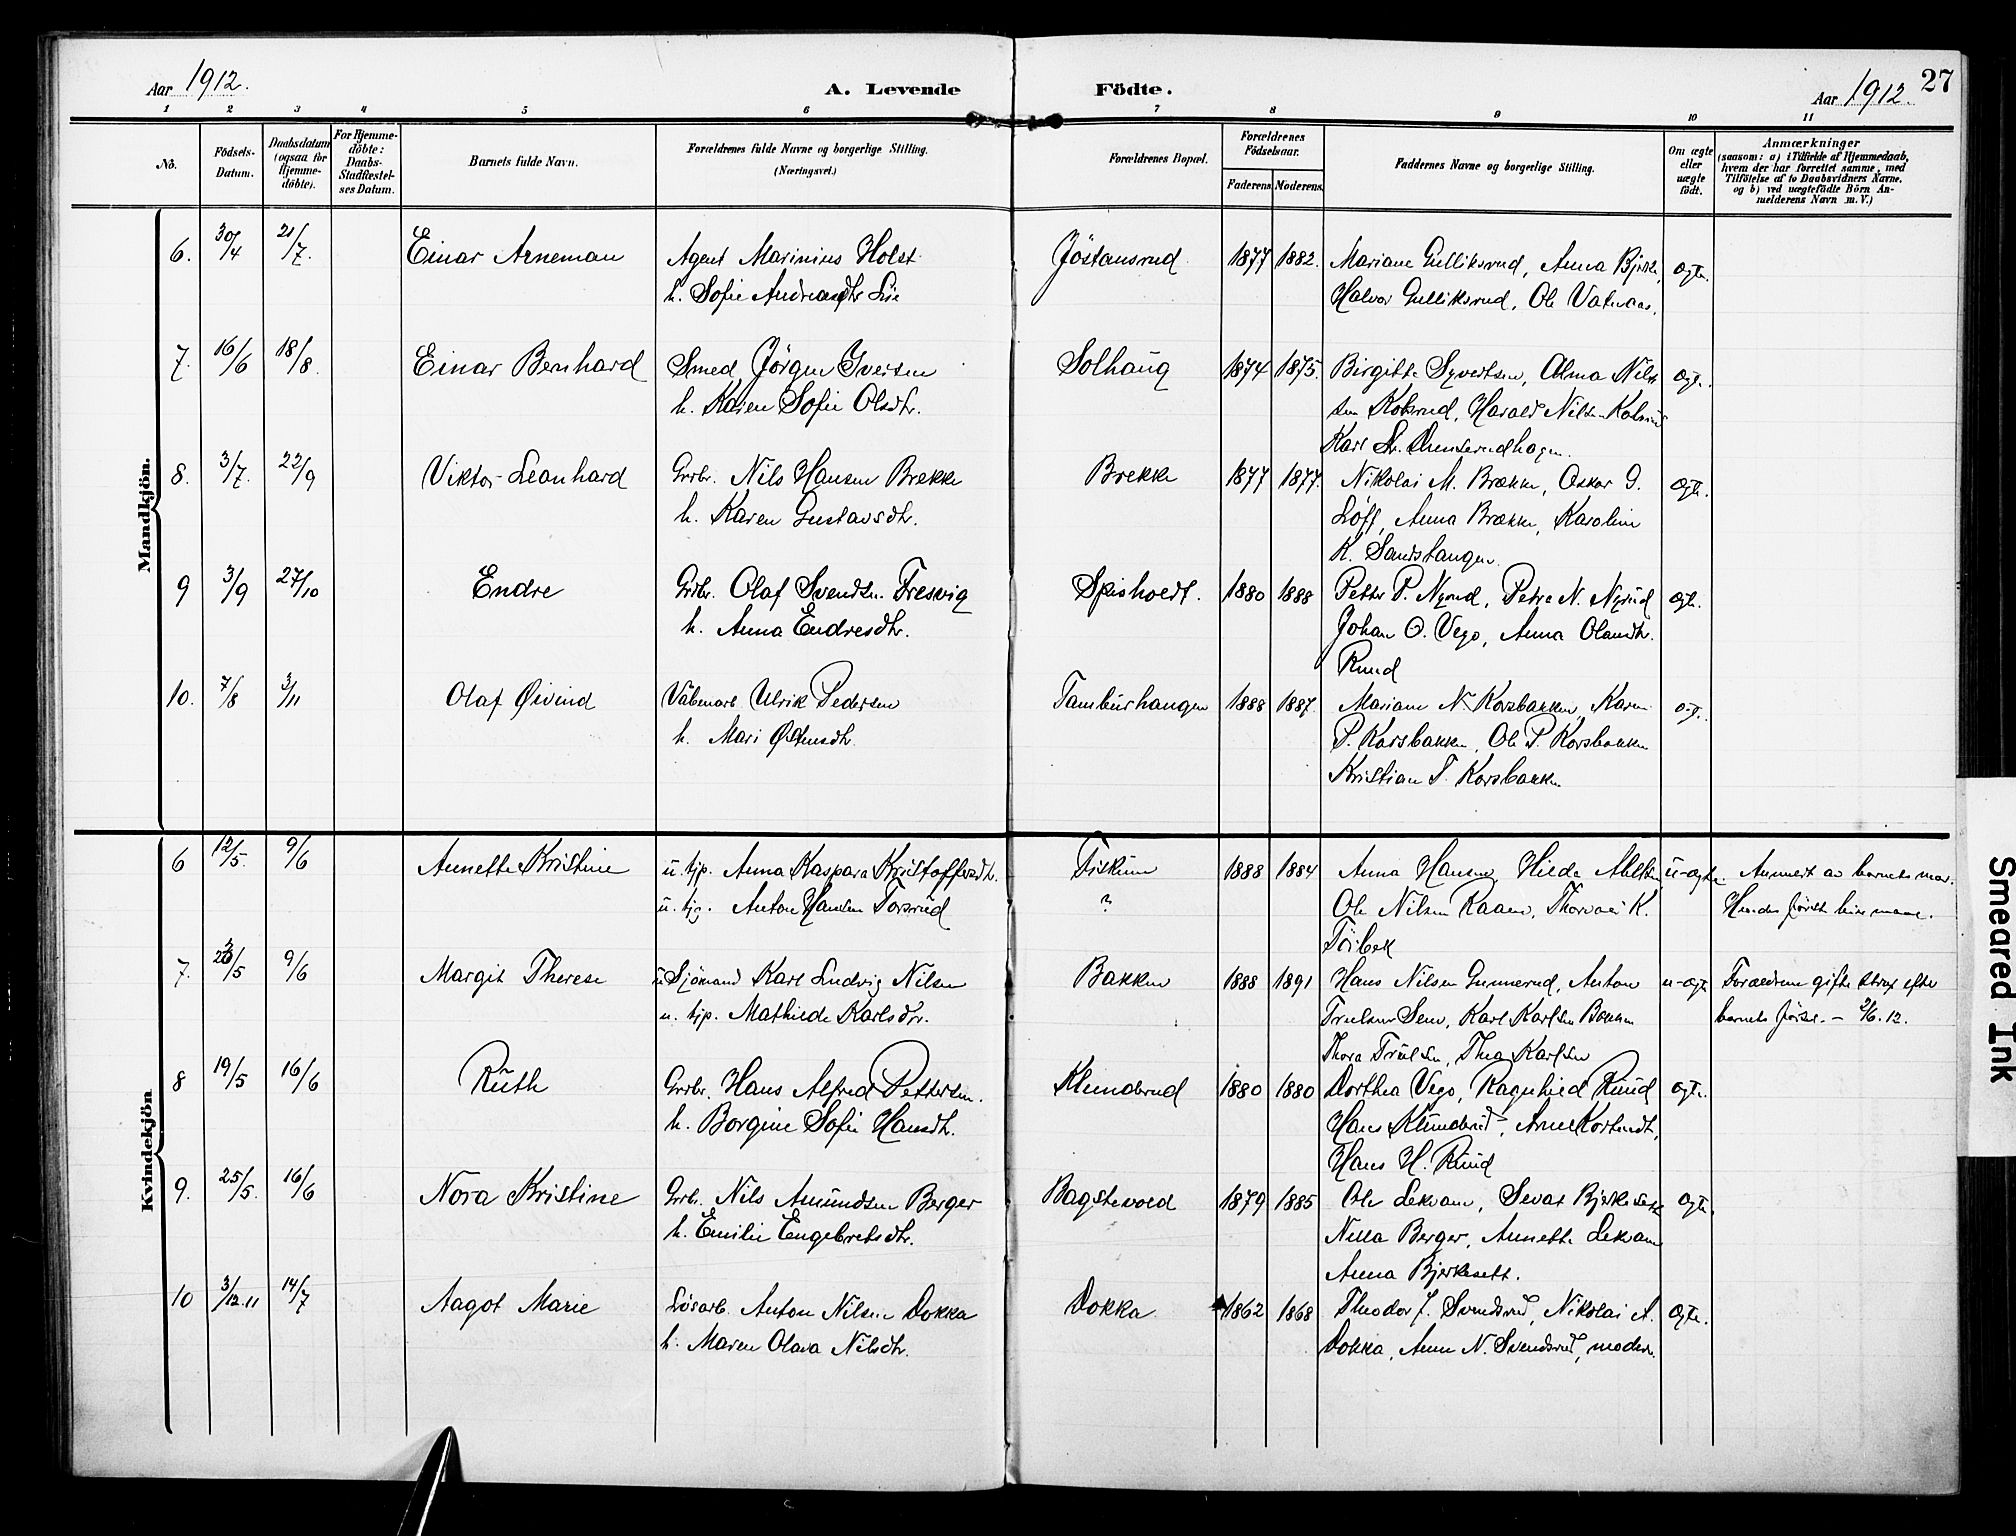 Aar 1912.
A. Levende Födte.
Aar 1912. 27
1 2 3 4 5 6 7 8 9 10 11
No.
Födsels-
Datum.
Daabsdatum
(ogsaa for
Hjemme-
döbte).
For Hjemme-
döbte:
Daabs-
Stadfæstel-
ses Datum.
Barnets fulde Navn.
Forældrenes fulde Navne og borgerlige Stilling.
(Næringsvei.)
Forældrenes Bopæl.
Forældrenes
Födselsaar.
Faderens. Moderens.
Faddernes Navne og borgerlige Stilling.
Om ægte
eller
uægte
født.
Anmærkninger
(saasom: a) i Tilfælde af Hjemmedaab,
hvem der har forrettet samme, med
Tilföielse af to Daabsvidners Navne,
og b) ved uægtefödte Börn An-
melderens Navn m. V.)
Mandkjön.
6. 30/4 21/7. Einar Arneman Agent Marinius Holst Jöstansrud 1877 1882. Mariane Gulliksrud, Anna Bjerke, ægte.
h. Sofie Andreasdtr Lie Halvor Gulliksrud, Ole Vatnaas.
7. 16/6 18/8. Einar Bernhard Smed Jörgen Iversen Solhaug 1874 1875. Birgitte Syvertsen, Alma Nil- ægte.
h. Karen Sofie Olsdtr. sen Kolsrud, Harald Nilsen Kolsrud
Karl
8. 3/7. 22/9 Viktor Leonhard Grbr. Nils Hansen Brekke Brekke 1877 1877. Nikolai M. Brække, Oskar G. ægte.
h. Karen Gustavsdtr. Löff, Anna Brække, Karoline
K. Sandstangen.
9 3/9 27/10 Endre Grdbr. Olaf Svendsen Fresvig Spisholdt. 1880 1888 Petter P. Nyrud, Petra N. Nyrud ægte.
h. Anna Endresdtr. Johan O. Vego, Anna Olausdtr.
Ruud
10. 7/8 3/11 Olaf Øivind Våbenarb. Ulrik Pedersen Tamburhaugen 1888 1887. Mariane N. Korsbakken, Karen ægt.
h. Mari Østensdtr. P. Korsbakken, Ole P. Korsbakken
Kristian T. Korsbakken
Kvindekjön
6 12/5. 9/6 Annette Kristine u. tjp. Anna Kaspara Kristoffersdtr. Fiskum 1888 1884 Anna Hansen, Hilda u-ægte. Anmeldt av barnets mor.
u. tjg. Anton Hansen Torsrud ? Ole Nilsen Kaasa, Thorvald K. Hendes første leiermaal.
7. 23/5 9/6 Margit Therese u Sjömand Karl Ludvig Nilsen Bakken 1888 1891 Hans Nilsen Gunnerud, Anton u-ægte Forældrene gifte strax efter
u. tjp. Mathilde Karlsdtr. Trulsen Sem, Karl Karlsen Bakken barnets fødsel. – 2/6. 12.
Thora Trulsen, Thea Karlsen
8 19/5 16/6 Ruth Grdbr. Hans Alfred Pettersen. Klunderud 1880 1880 Dorthea Vego, Ragnhild Ruud ægte.
h. Borgine Sofie Hansdtr. Hans Klunderud,
Hans H. Ruud
9. 25/5. 16/6 Nora Kristine Grbr. Nils Amundsen Berger Bagstevold 1879 1885 Ole Lekvam, Sevat Bjerkesett ægte.
h. Emilie Engebretsdtr. Nilla Berger, Annette Lekvam
Anna Bjerkesett.
10 3/12.11 14/7 Aagot Marie Lösarb. Anton Nilsen Dokka Dokka 1862 1868 Theodor J. Svendsrud, Nikolai A. ægte.
h. Maren Olava Nilsdtr. Dokka, Anne N. Svendsrud, moderen.
Smeared Ink